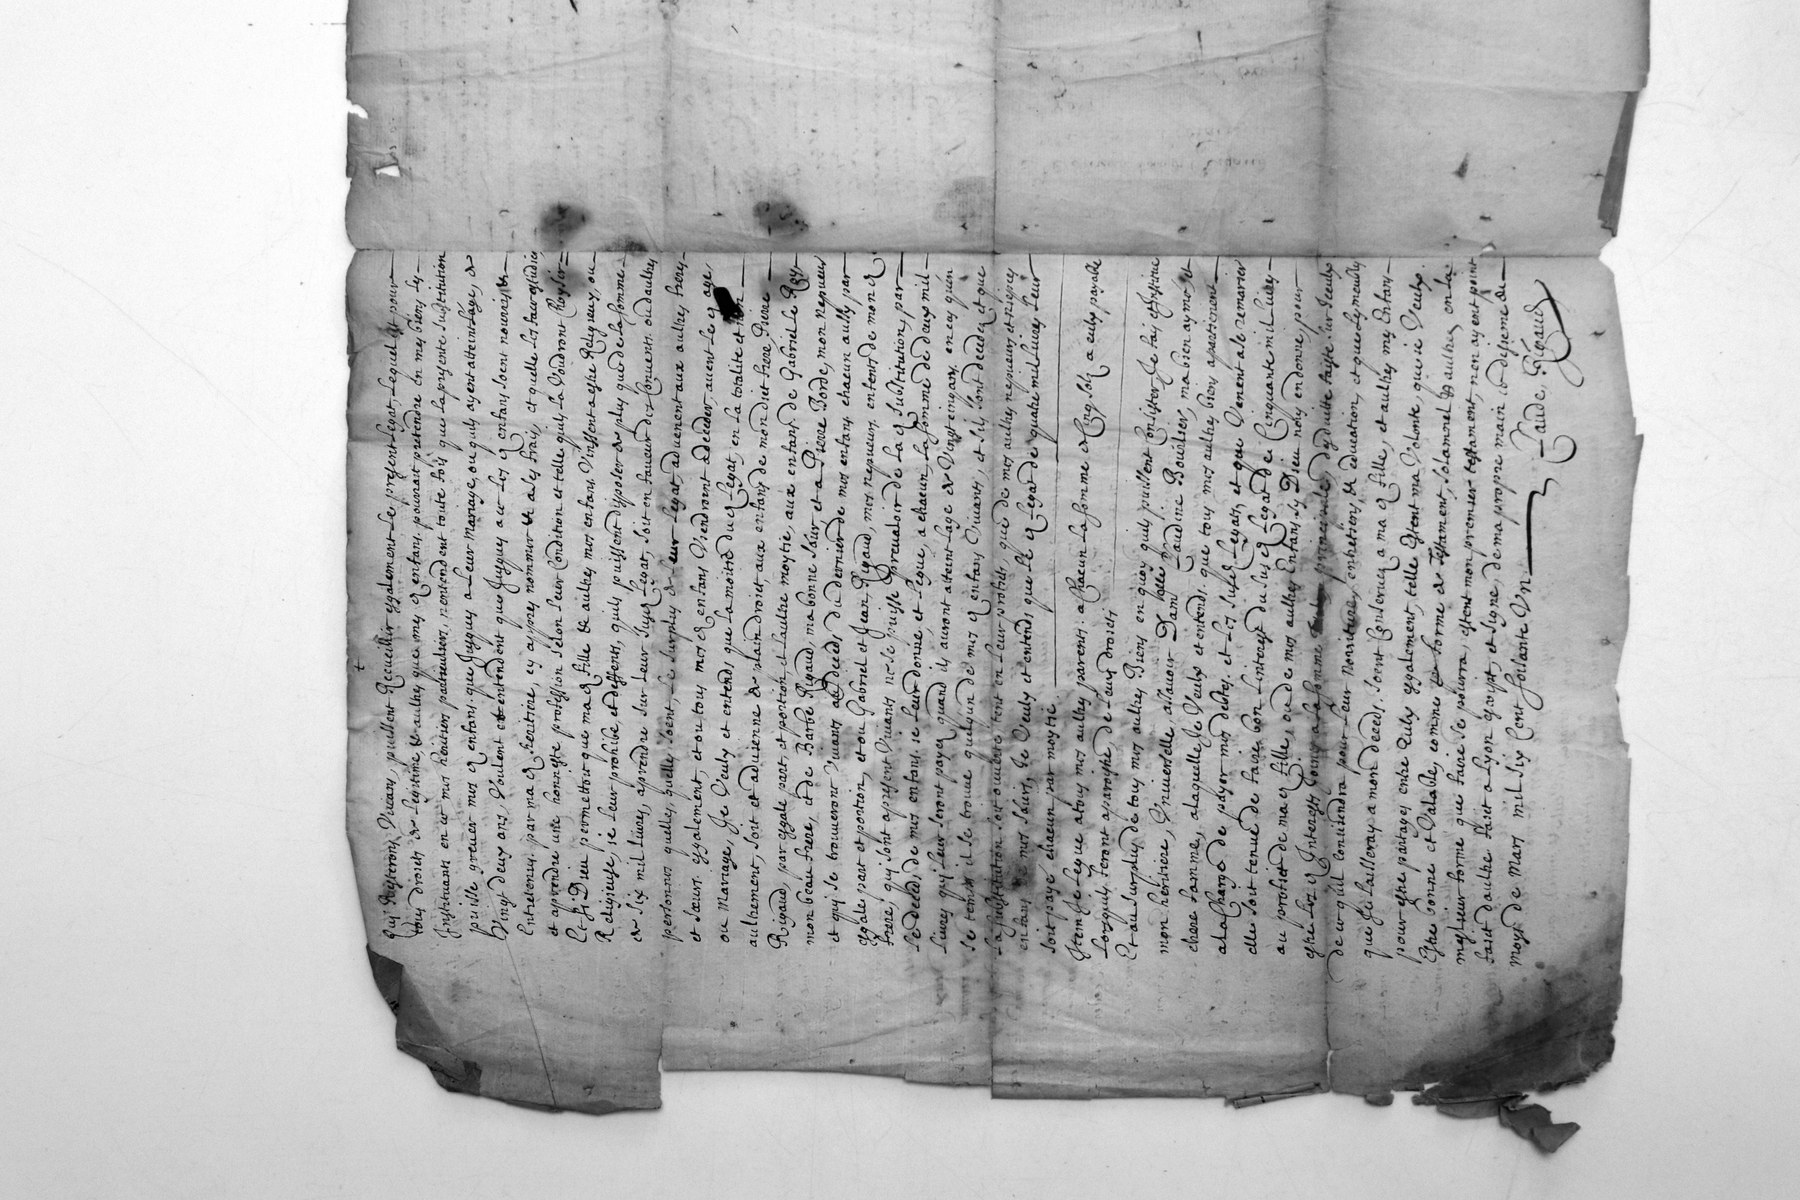 qui Resteront Vivans, puissent Recueillir egalement le present legat, lequel est pour
tous droits de legitime & aultres que mesd enfans pourroint pretendre en mes biens les
Instituants en ce mes heritiers particuliers, n'entendent toute fois que la presente substitution
puisse grever mesd enfans que Jusques a leur mariage, ou quils ayent atteint l'age de
Vingt deux ans, Voulent et entendent que Jusques a ce lesd enfans soient nourris &
Entretenus par mad heritiere, et apprès nommer & a ses frais, et quelle les face estudier
et aprendre une honneste profession selon leur Condition et telle quils la Voudront Choysir
Et si Dieu permettoit que mad fille & aultres mes enfans Vinssent a estre Religieux, ou
Religieuse, je leur prohibe, et deffents, quils puissent disposer de plus que de la somme
de six mil livres, a prendre sur leur susd legat, soit en faveur desd Convents ou daultres
personnes quelles, quelles soient, le surplus de leur legat advenent aux aultres freres
et sœurs egalement, et ou tous mesd enfans Viendroient a deceder, avent led age,
ou Mariage, Je Veulx et entends que la moitié dud legat, en la totalité et non
aultrement, soit et advienne de plain droict, aux enfans de mondict frere Pierre
Rigaud, par egale part et portion et l'aultre moytie, aux enfans de Gabriel le Roy
mon beau frere, et de Barbe Rigaud, ma bonne sœur, et a Pierre Borde, mon nepveu
et qui se trouveront Vivants au deceds du dernier de mes enfans chacun aussy par
egale part et portion, et ou Gabriel et Jean Rigaud, mes nepveux enfents de mond
frere, qui sont a present Vivants ne se puisse prevaloir de lad substitution, par
le deceds, de mes enfans. je leur donne et legue, a chacun la somme de deux mil
livres qui leur seront payes quand ils auront atteint l'age de Vingt cinq ans, en cas qu'en
se temps il se trouve quelqu'un de mesd enfans Vivants, et sils sont decedes et que
la substitution soit ouverte tent en leur profict, que de mes aultres nepveux et nieces
enfans de mes sœurs, Je Veulx et entends, que led legat de quatre mil livres leur
soit paye chacun par moytie.
Item Je legue a tous mes aultres parents a chacun la somme de Cinq solz a eulx payable
lorsquils feront aparoistre de leurs droicts
Et au surplus de tous mes aultres Biens en quoy quils puissent Consister Je fais et Institue
mon heritiere, Universelle, a scavoir Damlle Claudine Bourlier, ma bien aymée &
chere famme, a laquelle Je Veulx et entends que tous mes aultres biens apartienent
a la Charge de payer mes debtes et les susd legats, et que Venent a se remarier
elle soit tenue de faire bon l'interest du susd legat de Cinquante mil livres
au profict de mad fille, ou de mes aultres Enfans sy Dieu nous en donne, pour
estre lesd Interests Joints a la somme principale, deduite faicte sur Iceulx
de ce quil conviendra pour leur Nourriture, entretiens & education, et que les meubles
que Je laisseray a mon deceds, soient Conservés a mad fille, et aultres mes Enfans
pour estre partages entre Eulx egalement, telle Estent ma Volonte, que je Veulx
Estre bonne et Valable, comme en forme de Testament, solemnel & aultres en la
meilleur forme que faire se pourra, estent mon premier testament, nen ayent point
faict daultre faict a Lyon escript, et signe, de ma propre main ce dixieme de
Moys de Mars mil six Cent soixante Un
Claude Rigaud